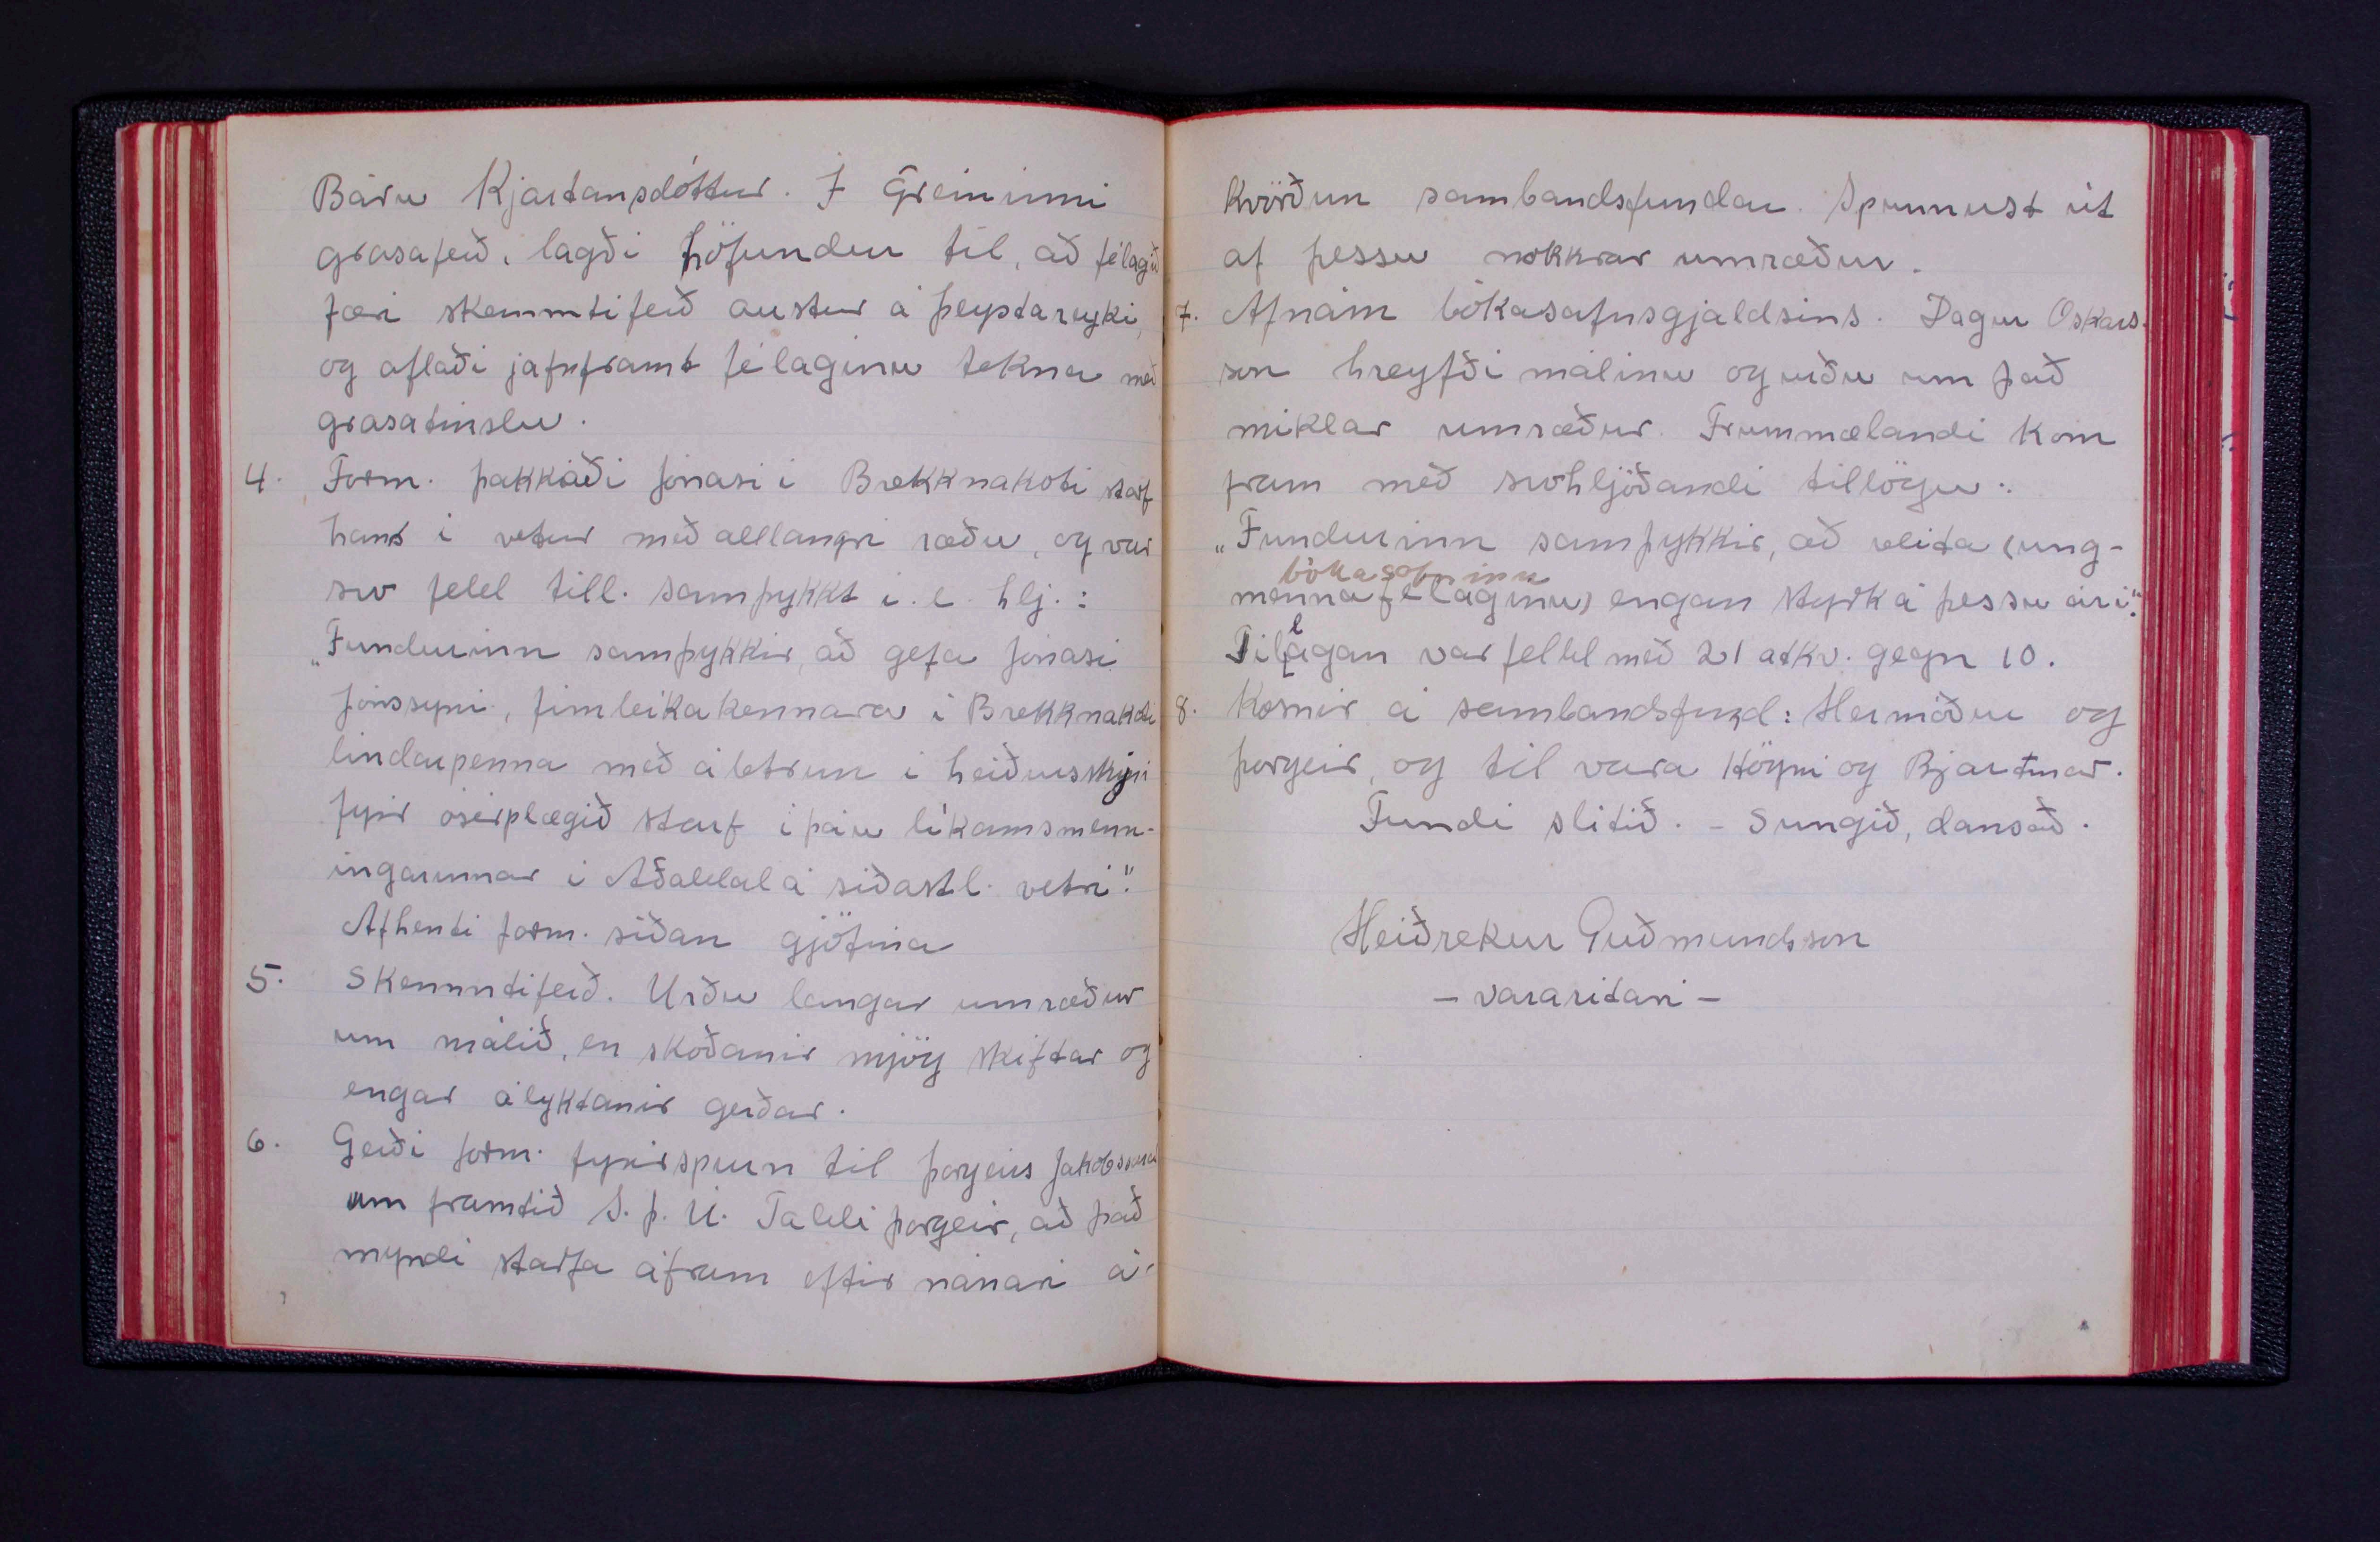 Báru Kjartansdóttur. Í Greininni
grasaferð, lagði höfundur til, að félagið
færi skemmtiferð austur á Þeystareyki,
og aflaði jafnframt félaginu tekna með
grasatínslu.
4. Form. þakkaði Jónasi í Brekknakoti starf
hans í vetur með alllangri ræðu, og var
svo felld till. samþykkt í. e. hlj.:
„Fundurinn samþykkir, að gefa Jónasi
Jónssyni, fimleikakennara í Brekknakoti
lindarpenna með áletrun í heiðursskyni
fyrir ósérplægið starf í þáu líkamsmenn-
ingarinnar í Aðaldal á síðastl. vetri.“
Afhenti form. síðan gjöfina
5. Skemmtiferð. Urðu langar umræður
um málið, en skoðanir mjög skiftar og
engar ályktanir gerðar.
6. Gerði form. fyrirspurn til Þorgeirs Jakobssonar
um framtíð S.Þ.U. Taldi Þorgeir, að það
myndi starfa áfram eftir nánari á-
kvörðun sambandsfundar. Spunnust út
af þessu nokkrar umræður.
7. Afnám bókasafnsgjaldsins. Dagur Óskars-
son hreyfði málinu og urðu um það
miklar umræður. Frummælandi kom
fram með svohljóðandi tillögu:
„Fundurinn samþykkir, að veita (ung-
bókasafninu
mennafélaginu) engan styrk á þessu ári.“
Tillagan var felld með 21 atkv. gegn 10.
8. Kosnir á sambandsfund: Hermóður og
Þorgeir, og til vara Högni og Bjartmar.
Fundi slitið. - Sungið, dansað.
Heiðrekur Guðmundsson
- vararitari -